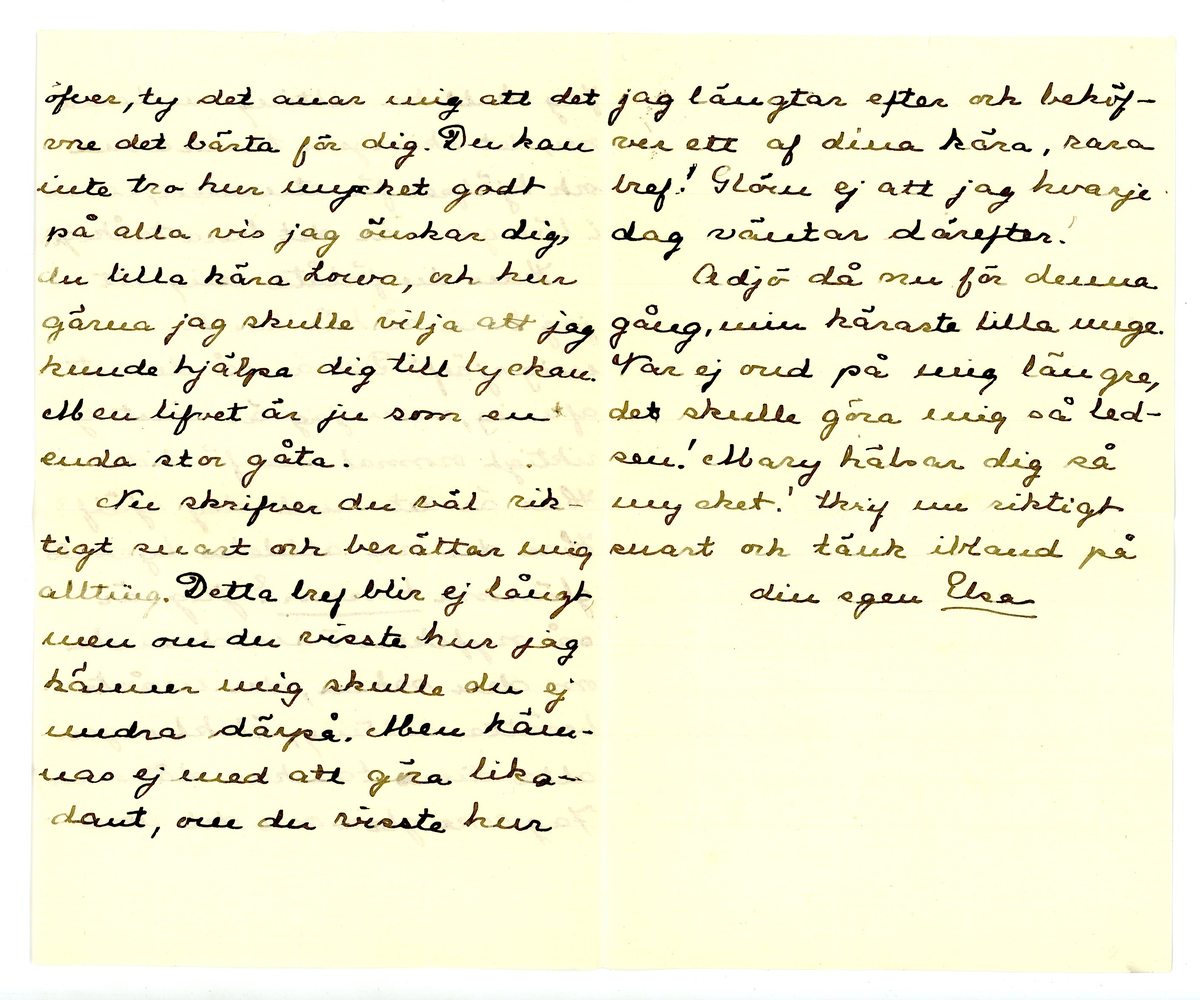 öfver, ty det anar mig att det
vore det bästa för dig. Du kan
inte tro hur mycket godt
på alla vis jag önskar dig,
du lilla kära Lowa, och hur
gärna jag skulle vilja att jag
kunde hjälpa dig till lyckan.
Men lifvet är ju som en
enda stor gåta.
Nu skrifver du väl rik-
tigt snart och berättar mig
allting. Detta bref blir ej långt
men om du visste hur jag
känner mig skulle du ej
undra därpå. Men häm-
nas ej med att göra lika-
dant, om du visste hur
jag längtar efter och behöf-
ver ett af dina kära, rara
bref! Glöm ej att jag hvarje
dag väntar därefter!
Adjö då nu för denna
gång, min käraste lilla unge.
Var ej ond på mig längre,
det skulle göra mig så led-
sen! Mary hälsar dig så
mycket! Skrif nu riktigt
snart och tänk ibland på
din egen Elsa